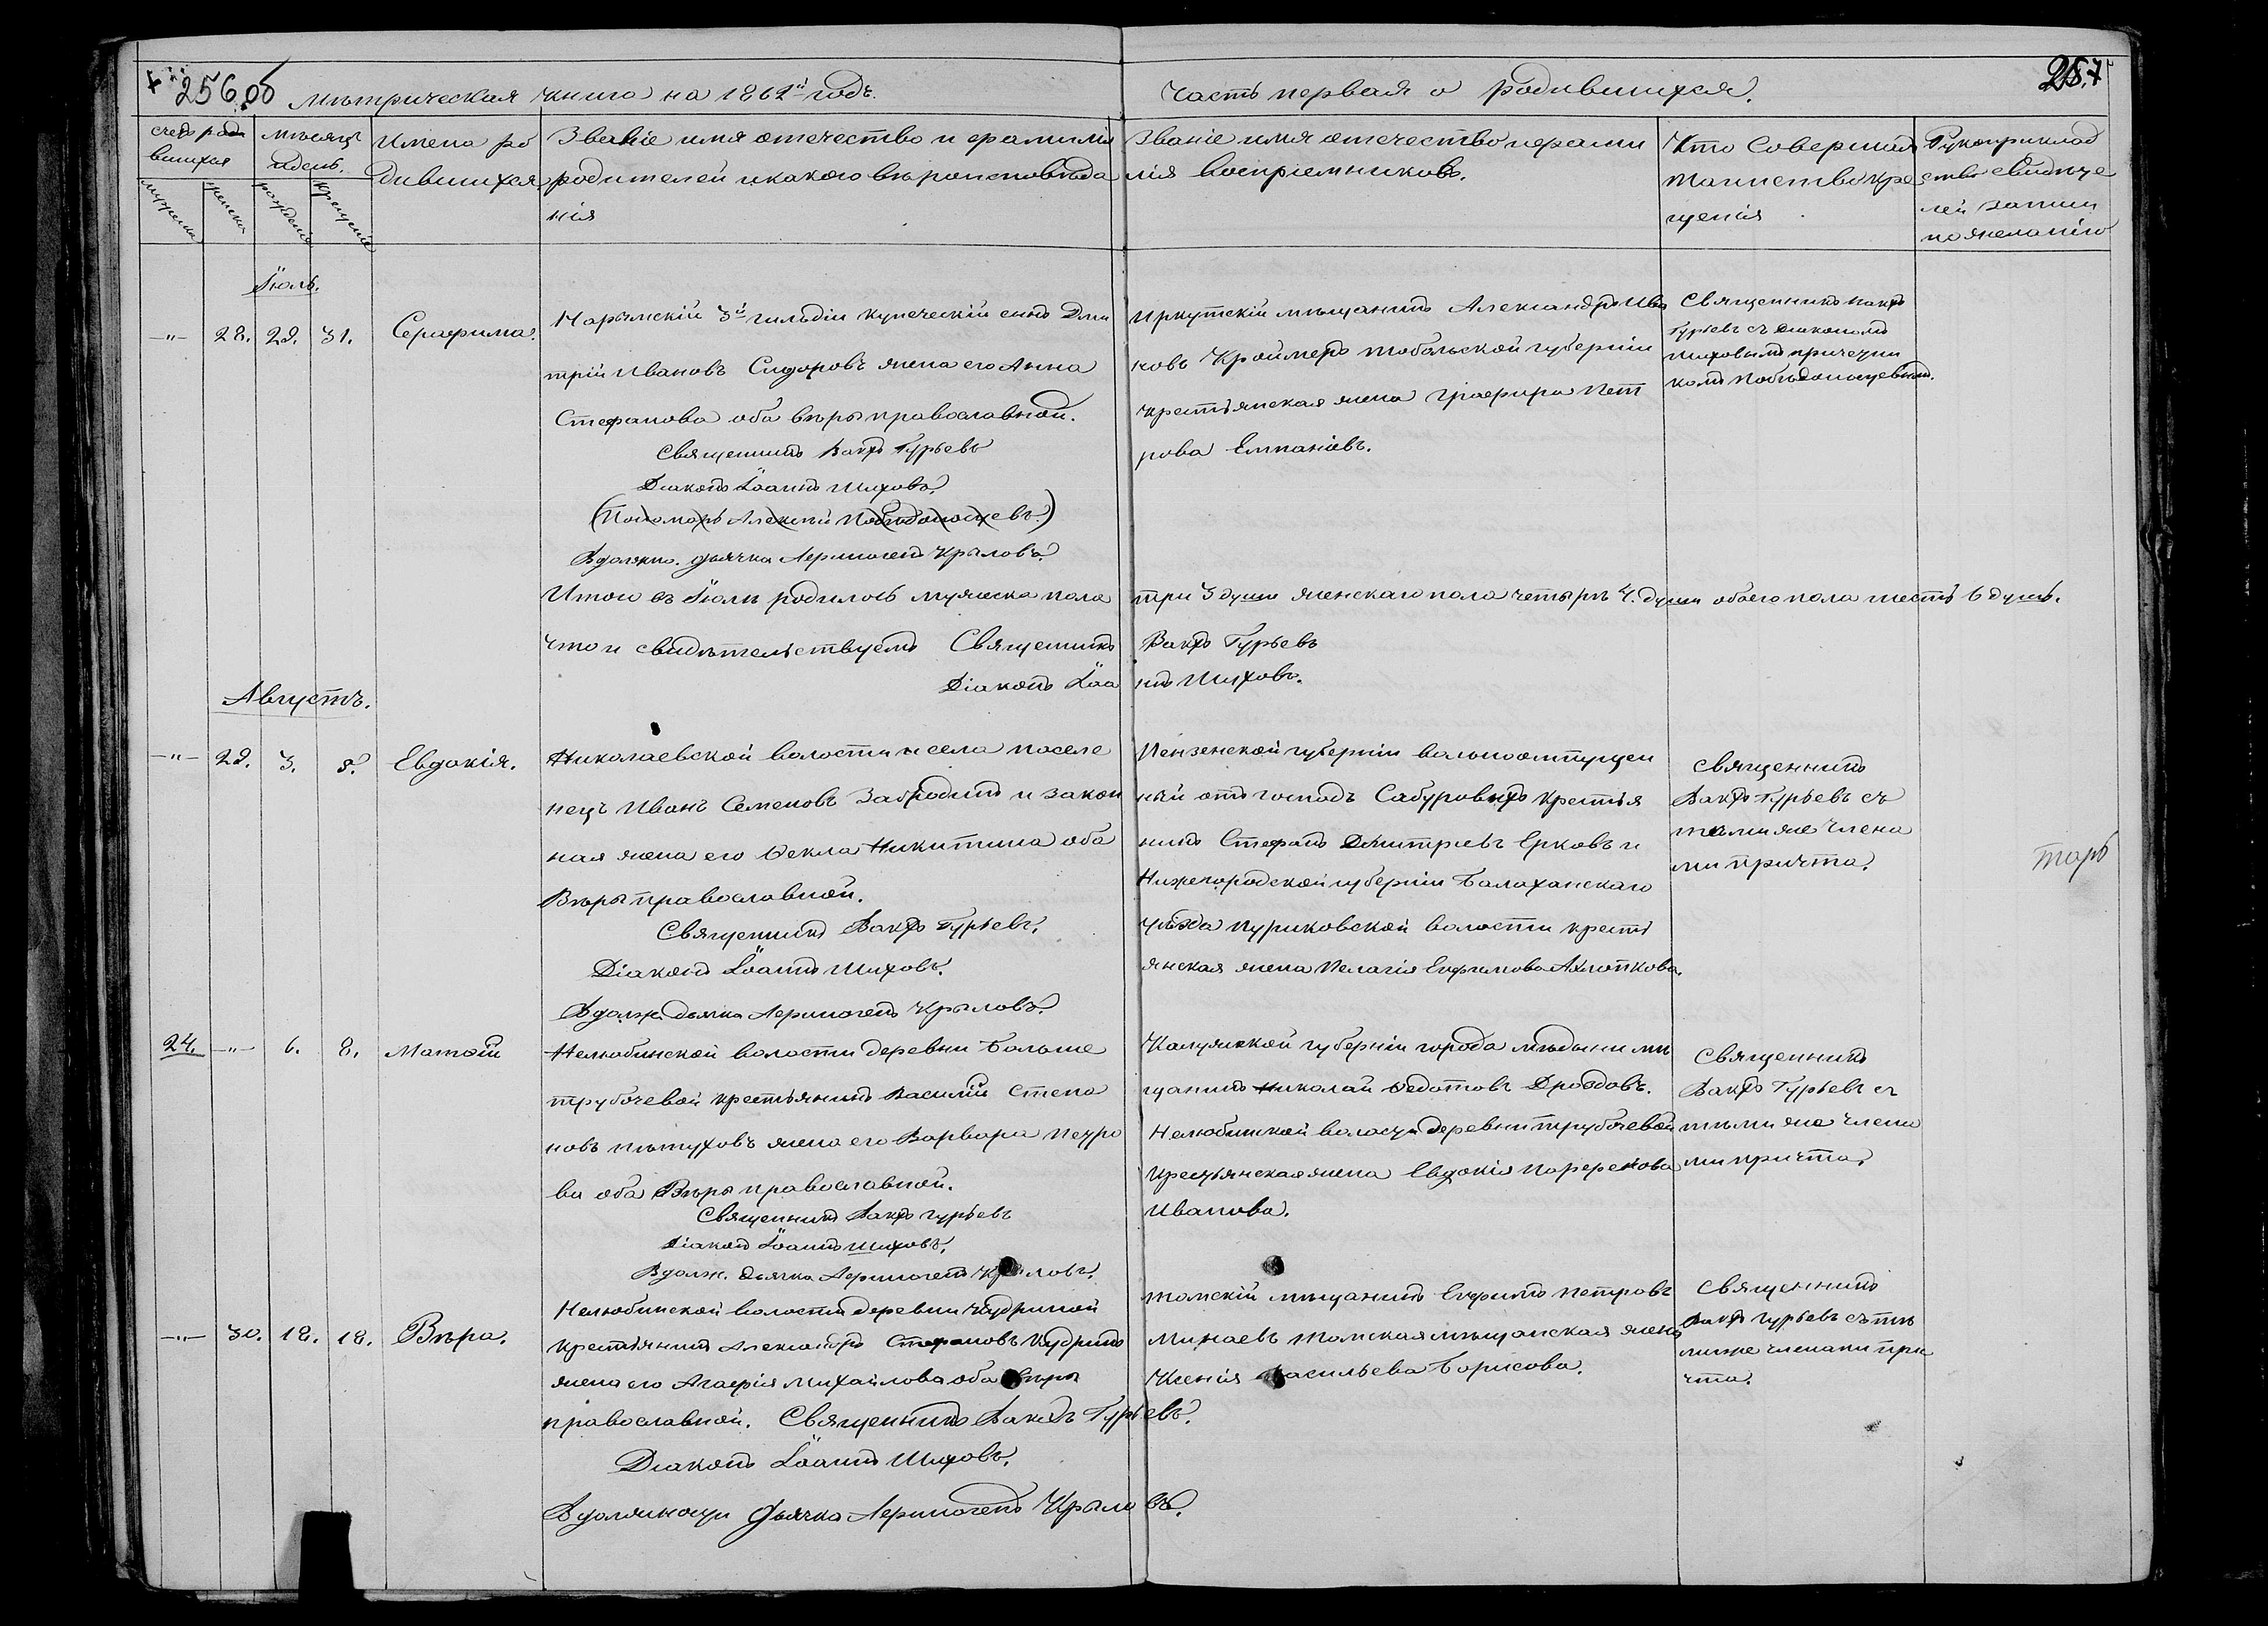 256 об Метрическая книга на 1862й годъ.
Часть первая о родившихся.
257
счетъ роди
вшихся
мужеска
женска
мѣсяцъ
и день.
рожденія
крещенія
Имена ро
дившихся
Званіе имя отечество и фамилія
родителей и какого вѣроисповѣда
нія
Званіе имя отечество и фами
лія воспріемниковъ.
Кто совершалъ
таинство кре
щенія
Рукоприклад
ство свидѣте
лей записи
по желанію
Іюль.
—"— 28. 29. 31. Серафима.
Нарымскій 3й гильдіи купеческій сынъ Дми
трій Ивановъ Сидоровъ жена его Анна
Стефанова оба вѣры православной.
Священникъ Вакхъ Гурьевъ
Діаконъ Іоаннъ Шиховъ.
(Пономарь Алексѣй Побѣдоносцевъ.)
В должно. дьячка Лермогенъ Крыловъ.
Иркутскій мѣщанинъ Александръ Ива
новъ Краймеръ тобольской губерніи
крестьянская жена Графира Пет
рова
Священникъ Вакхъ
Гурьевъ съ діакономъ
Шиховымъ причетни
комъ Побѣдоносцевымъ.
Итого въ Іюлѣ родилось мужеска пола три 3 души женскаго пола четырѣ 4. души обоего пола шесть 6 душъ.
что и свидѣтельствуемъ Священникъ Вакхъ Гурьевъ
Діаконъ Іоаннъ Шиховъ.
Августъ.
—"— 29. 3. 8. Евдокія.
Николаевской волости и села поселе
нецъ Иванъ Семеновъ Забродинъ и закон
ная жена его Ѳекла Никитина оба
Вѣры православной.
Священникъ Вакхъ Гурьевъ.
Діаконъ Іоаннъ Шиховъ.
В долж. дьячка Лермогенъ Крыловъ.
Пензенской губерніи вольноотпущен
ный отъ господъ Сабуровыхъ крестья
нинъ Стефанъ Дмитріевъ Ерковъ и
Нижегородской губерніи Балаханскаго
уѣзда Пуриковской волости кресть
янская жена Пелагія Евфимова
Священникъ
Вакхъ Гурьевъ съ
тѣми же члена
ми причта.
24. —"— 6. 8. Матѳій
Нелюбинской волости деревни Больше
трубочевой крестьянинъ Василій Степа
новъ Пѣтуховъ жена его Варвара Петро
ва оба Вѣры православной.
Священникъ Вакхъ Гурьевъ
Діаконъ Іоаннъ Шиховъ.
В долж. дьячка Лермогенъ Крыловъ.
Калужской губерніи города Мѣдыни мѣ
щанинъ Николай Ѳедотовъ Дроздовъ.
Нелюбинской волости деревни трубочевой
крестьянская жена Евдокія
Иванова.
Священникъ
Вакхъ Гурьевъ съ
тѣми же члена
ми причта.
—"— 30. 18. 18. Вѣра.
Нелюбинской волости деревни Кудриной
крестьянинъ Александръ Стефановъ Кудринъ
жена его Агафія Михайлова оба вѣры
православной. Священникъ Вакхъ Гурьевъ.
Діаконъ Іоаннъ Шиховъ.
В должности дьячка Лермогенъ Крыловъ.
томскій мѣщанинъ Евфимъ Петровъ
Минаевъ томская мѣщанская жена
Ксенія Васильева Борисова.
Священникъ
Вакхъ Гурьевъ съ тѣ
миже членами при
чта.